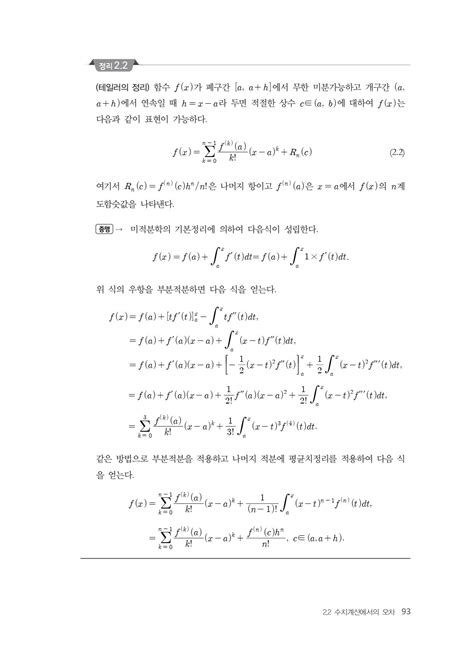 정리 2.2
(테일러의 정리) 함수 f(x)가 폐구간 [a, a+h]에서 무한 미분가능하고 개구간 (a,
a+h)에서 연속일 때 h = x−a라 두면 적절한 상수 c∈(a, b)에 대하여 f(x)는
다음과 같이 표현이 가능하다.
f(x) = ∑_{k=0}^{n−1} f^{(k)}(a)/k! (x−a)^k + R_n(c) (2.2)
여기서 R_n(c) = f^{(n)}(c)h^n/n!은 나머지 항이고 f^{(n)}(a)은 x = a에서 f(x)의 n계
도함숫값을 나타낸다.
증명 → 미적분학의 기본정리에 의하여 다음식이 성립한다.
f(x) = f(a) + ∫_a^x f′(t)dt = f(a) + ∫_a^x 1×f′(t)dt.
위 식의 우항을 부분적분하면 다음 식을 얻는다.
f(x) = f(a) + [tf′(t)]_a^x − ∫_a^x tf″(t)dt,
= f(a) + f′(a)(x−a) + ∫_a^x (x−t)f″(t)dt,
= f(a) + f′(a)(x−a) + [−1/2 (x−t)^2 f″(t)]_a^x + 1/2 ∫_a^x (x−t)^2 f‴(t)dt,
= f(a) + f′(a)(x−a) + 1/2! f″(a)(x−a)^2 + 1/2! ∫_a^x (x−t)^2 f‴(t)dt,
= ∑_{k=0}^{3} f^{(k)}(a)/k! (x−a)^k + 1/3! ∫_a^x (x−t)^3 f^{(k)}(t)dt.
같은 방법으로 부분적분을 적용하고 나머지 적분에 평균치정리를 적용하여 다음 식
을 얻는다.
f(x) = ∑_{k=0}^{n−1} f^{(k)}(a)/k! (x−a)^k + 1/(n−1)! ∫_a^x (x−t)^{n−1} f^{(n)}(t)dt,
= ∑_{k=0}^{n−1} f^{(k)}(a)/k! (x−a)^k + f^{(n)}(c)h^n/n!, c∈(a.a+h).
2.2 수치계산에서의 오차 93